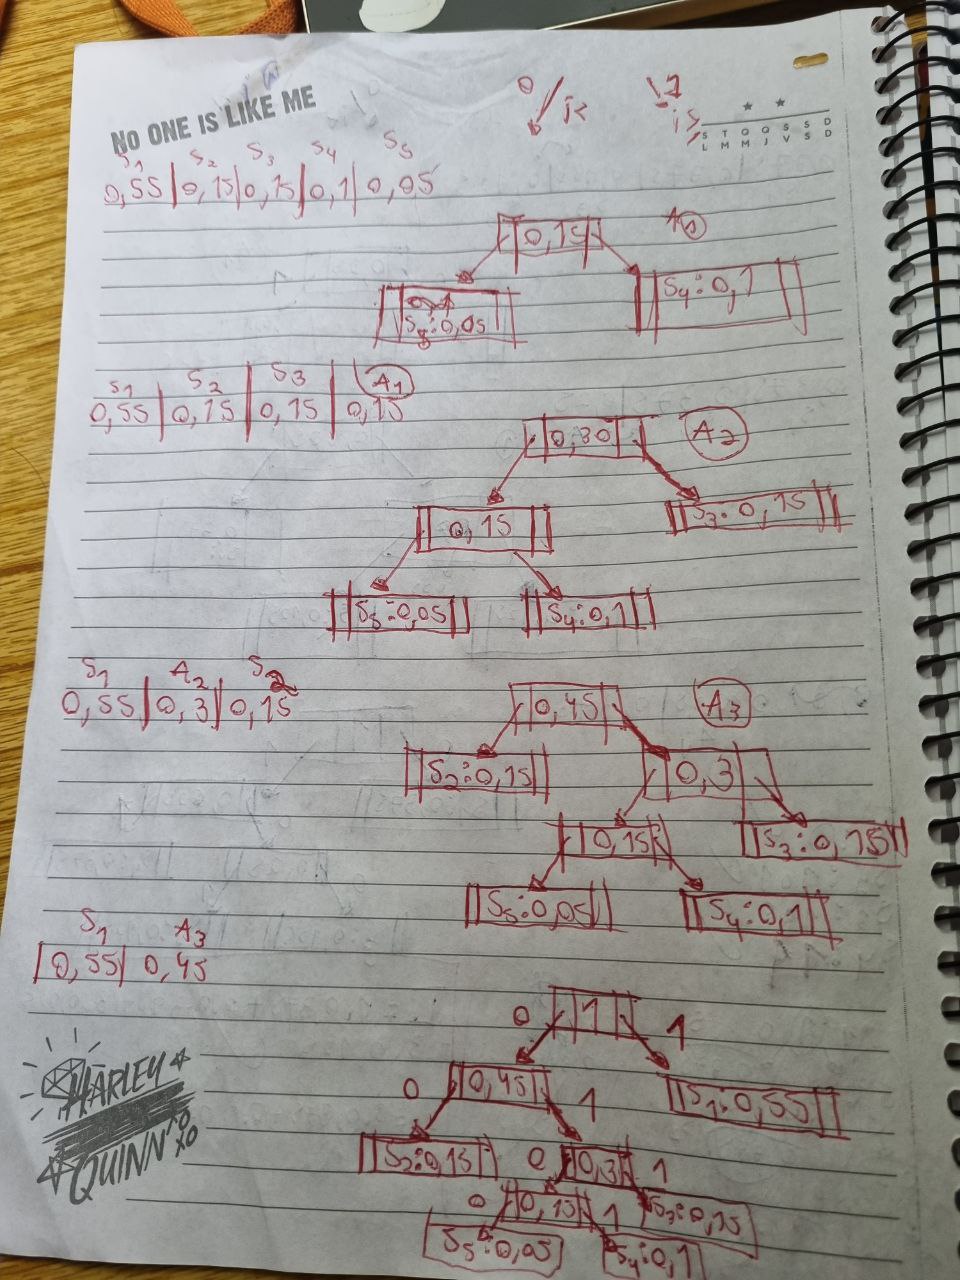 NO ONE IS LIKE ME
0
1
S T Q Q S S D
L M M J V S D
S1 S2 S3 S4 S5
0,55 0,15 0,15 0,1 0,05
0,15
S5:0,05 S4:0,1
S1 S2 S3 A1
0,55 0,15 0,15 0,15
0,30 A2
0,15 S3:0,15
S5:0,05 S4:0,1
S1 A2 S2
0,55 0,3 0,15
0,45 A3
S2:0,15 0,3
0,15 S3:0,15
S5:0,05 S4:0,1
S1 A3
0,55 0,45
0 1 1
0 0,45 1 S1:0,55
S2:0,15 0 0,3 1
0 0,15 1 S3:0,15
S5:0,05 S4:0,1
HARLEY
QUINN
XOXO